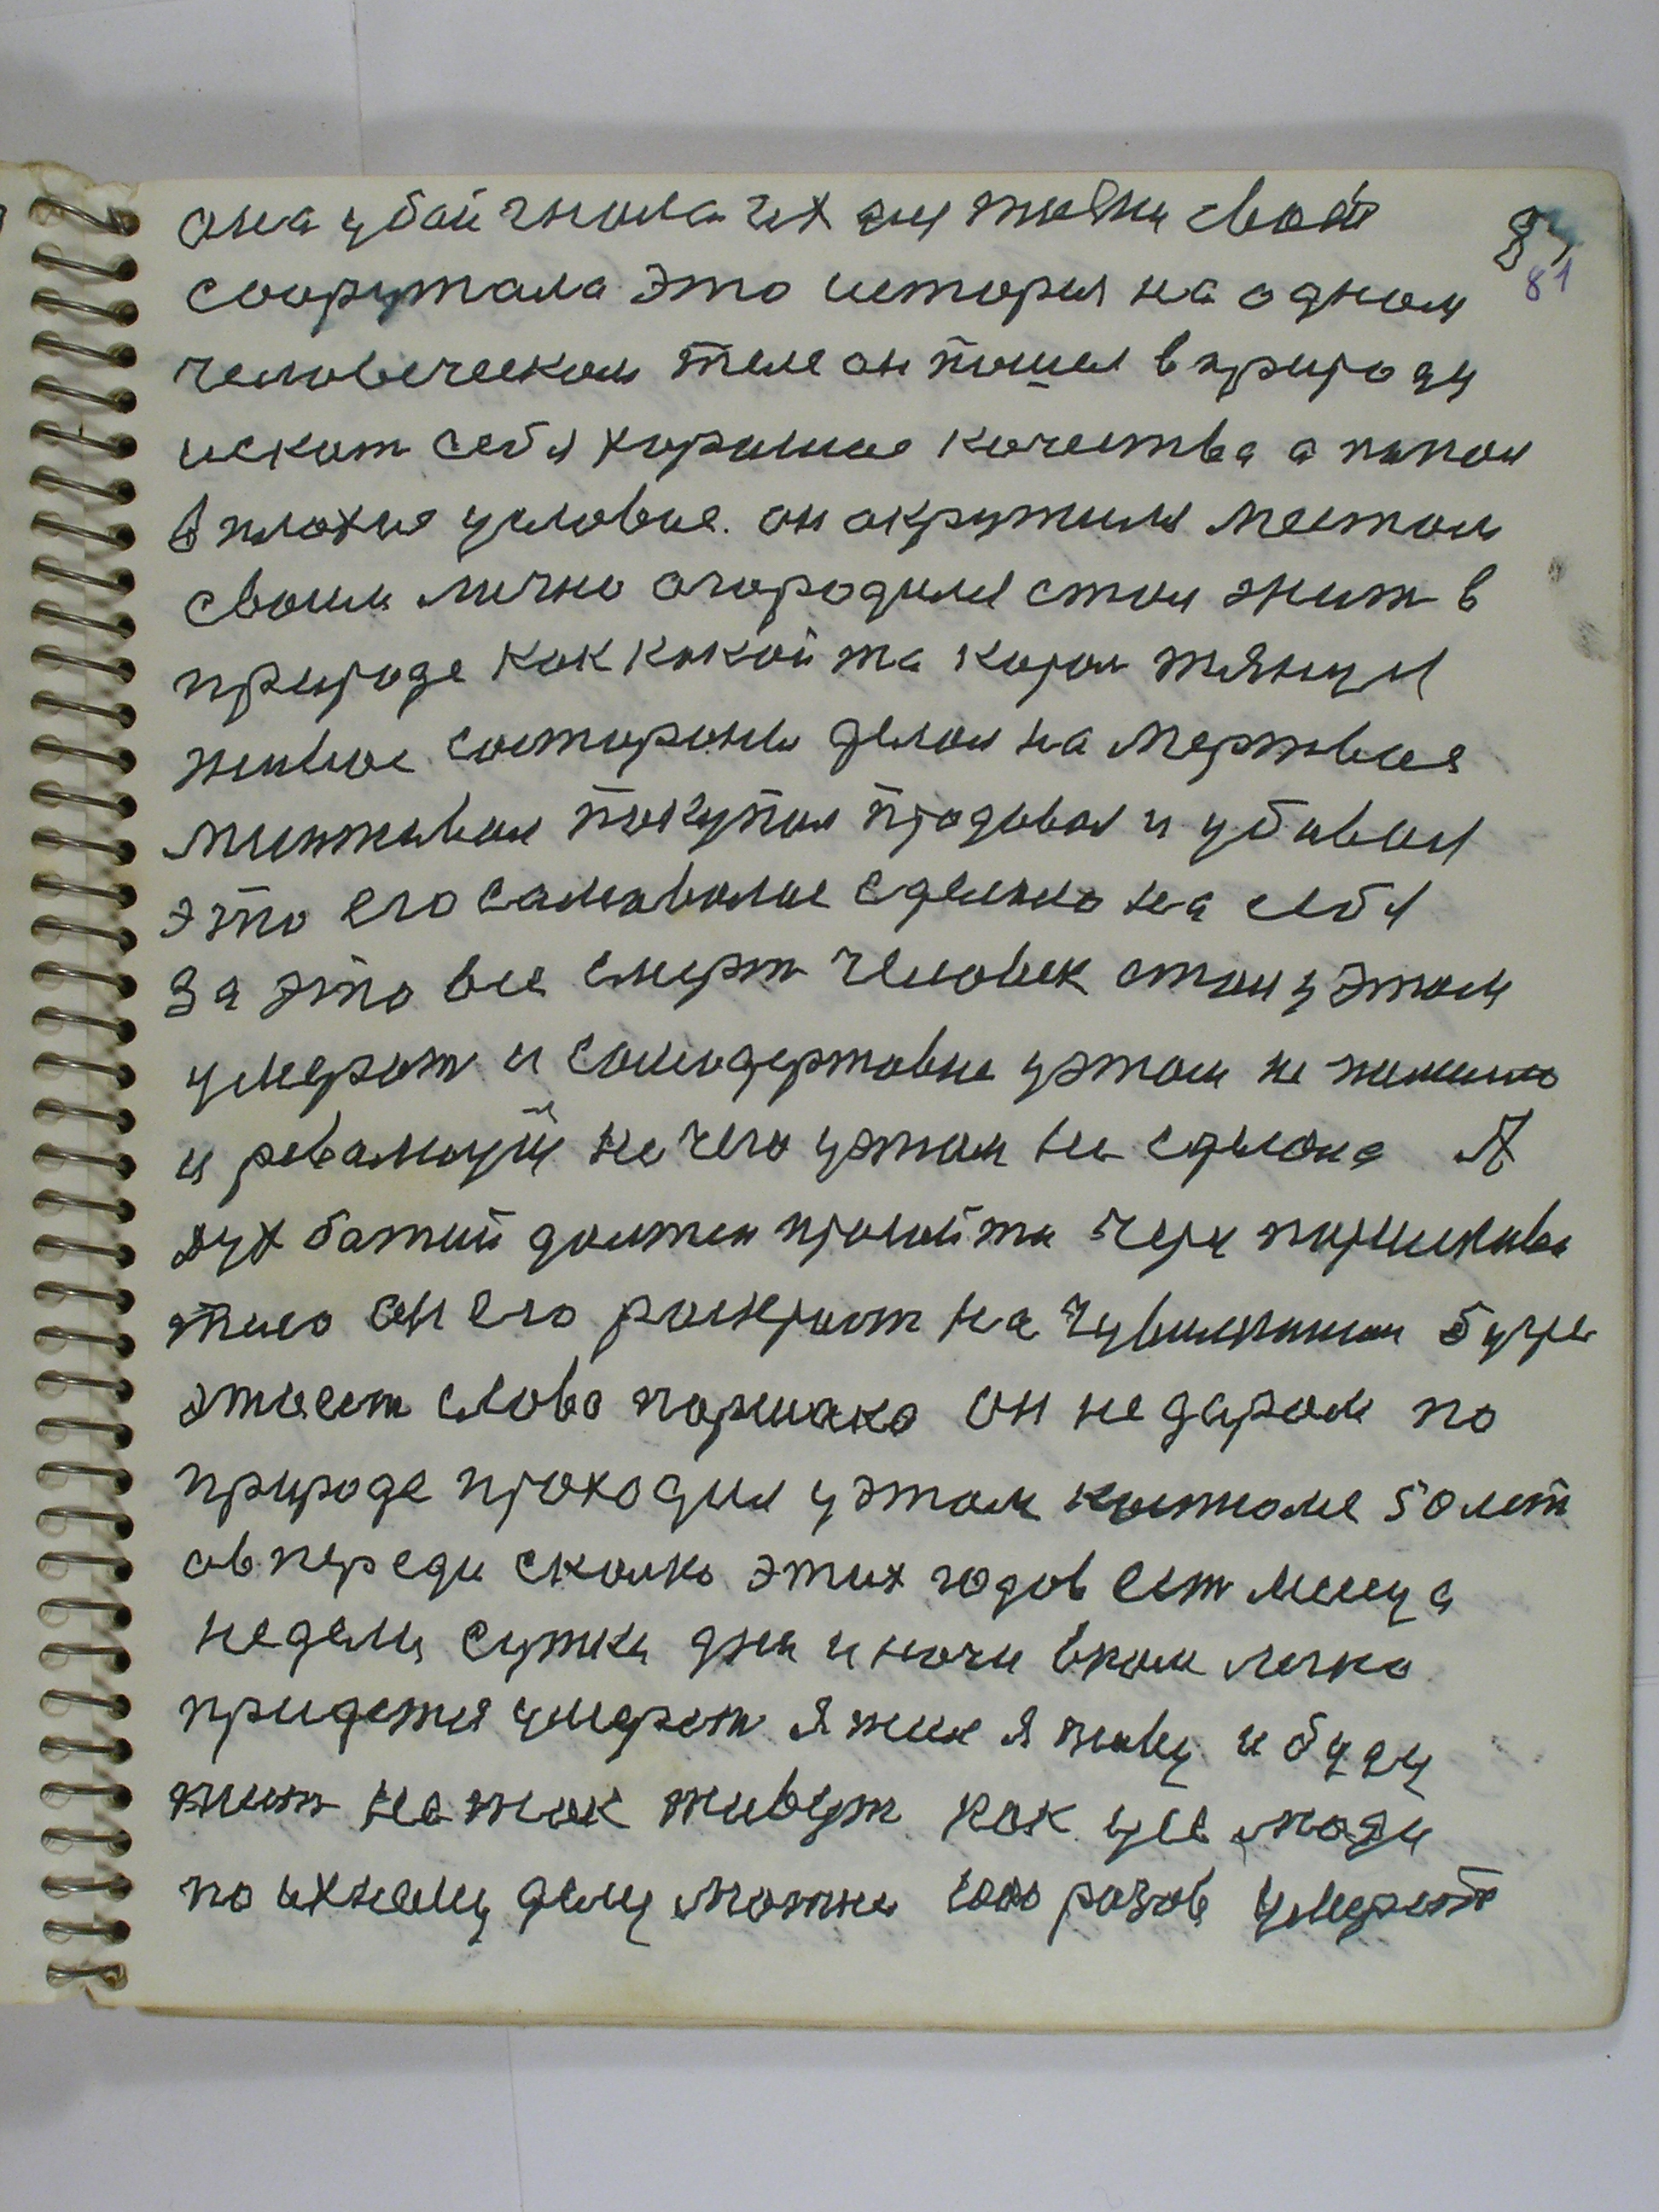 она убойгнола их для жизни своей
сооружала это история на одном
человеческом теле он пошел в природу
искат себя хорошие качества а попол
в плохие условие. он окружился местом
своим лично огородился стал жит в
природе как какой та король тянулся
живое состороны делал на мертвое
покупал продовал и убивал
это его самаволие сделано на себя
за это все смерт человек стал у этом
умерат и самодержавие у этом не помогло
и революций нечего у этом не сделоно А
дух божий должен пройти через поршекова
тело он его раскроет на Чувилкином бугре
этаест слово поршака он недаром по
природе проходил у этом костюме 50 лет
авпереди сколко этих годов ест месеца
недели сутки дня и ночи в ком легко
придется умерет я жил я живу и буду
жит не так живут как усе люди
по ихнему делу можно 1000 разов умерет
81